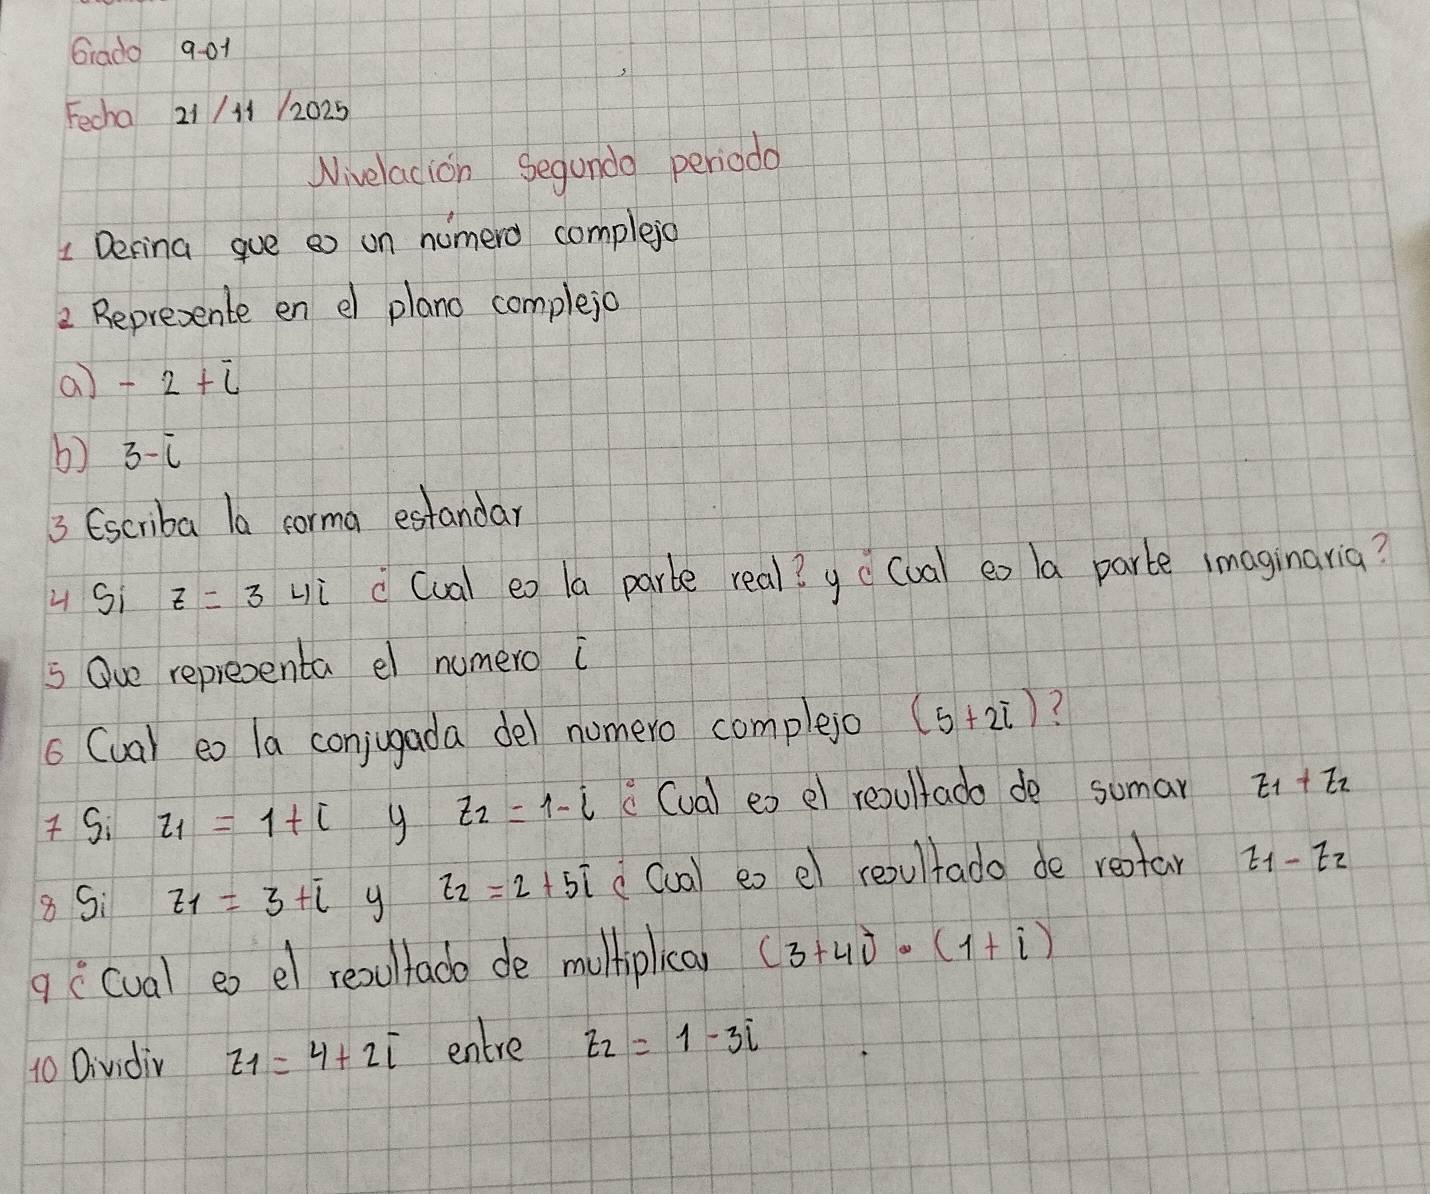 Grado 9-01
Fecha 21/11/2025
Nivelación segundo periodo
1 Defina que es un número complejo
2 Represente en el plano complejo
a) - 2 + i
b) 3 - i
3 Escriba la forma estandar
4 Si z = 3 4i ¿Cual es la parte real? y ¿Cual es la parte imaginaria?
5 Que representa el numero i
6 Cual es la conjugada del numero complejo (5+2i)?
7 Si z1 = 1+i y z2 = 1-i ¿Cual es el resultado de sumar z1 + z2
8 Si z1 = 3+i y z2 = 2+5i ¿Cual es el resultado de restar z1 - z2
9 ¿Cual es el resultado de multiplicar (3+4i) • (1+i)
10 Dividir z1 = 4+2i entre z2 = 1-3i